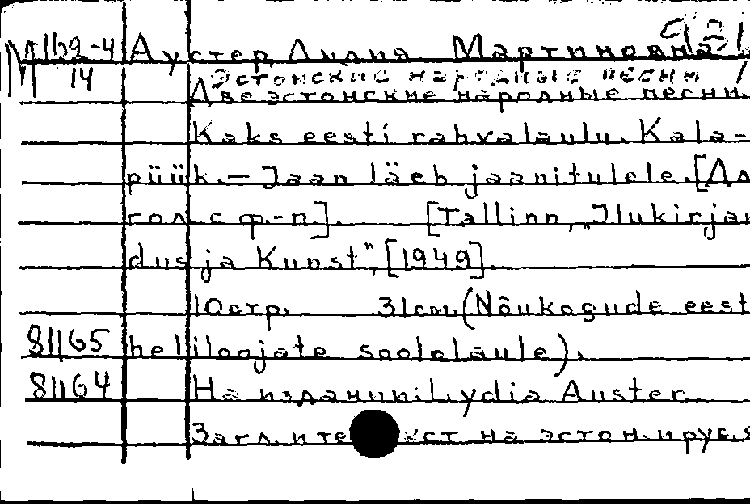 М 162-4 Аустер, Лидия Мартиновна
14 Эстонские народные песни
Две эстонские народные песни.
Kaks eesti rahvalaulu. Kala-
püük. – Jaan läeb jaanitulele. [Дл
гол. с ф-п.]. [Tallinn, „Ilukirjan
dus ja Kunst", [1949].
10 стр. 31 см. (Nõukogude eesti
81165 heliloojate soololaule).
81164 На издании: Lydia Auster.
Загл. и текст на эстон. и рус. я